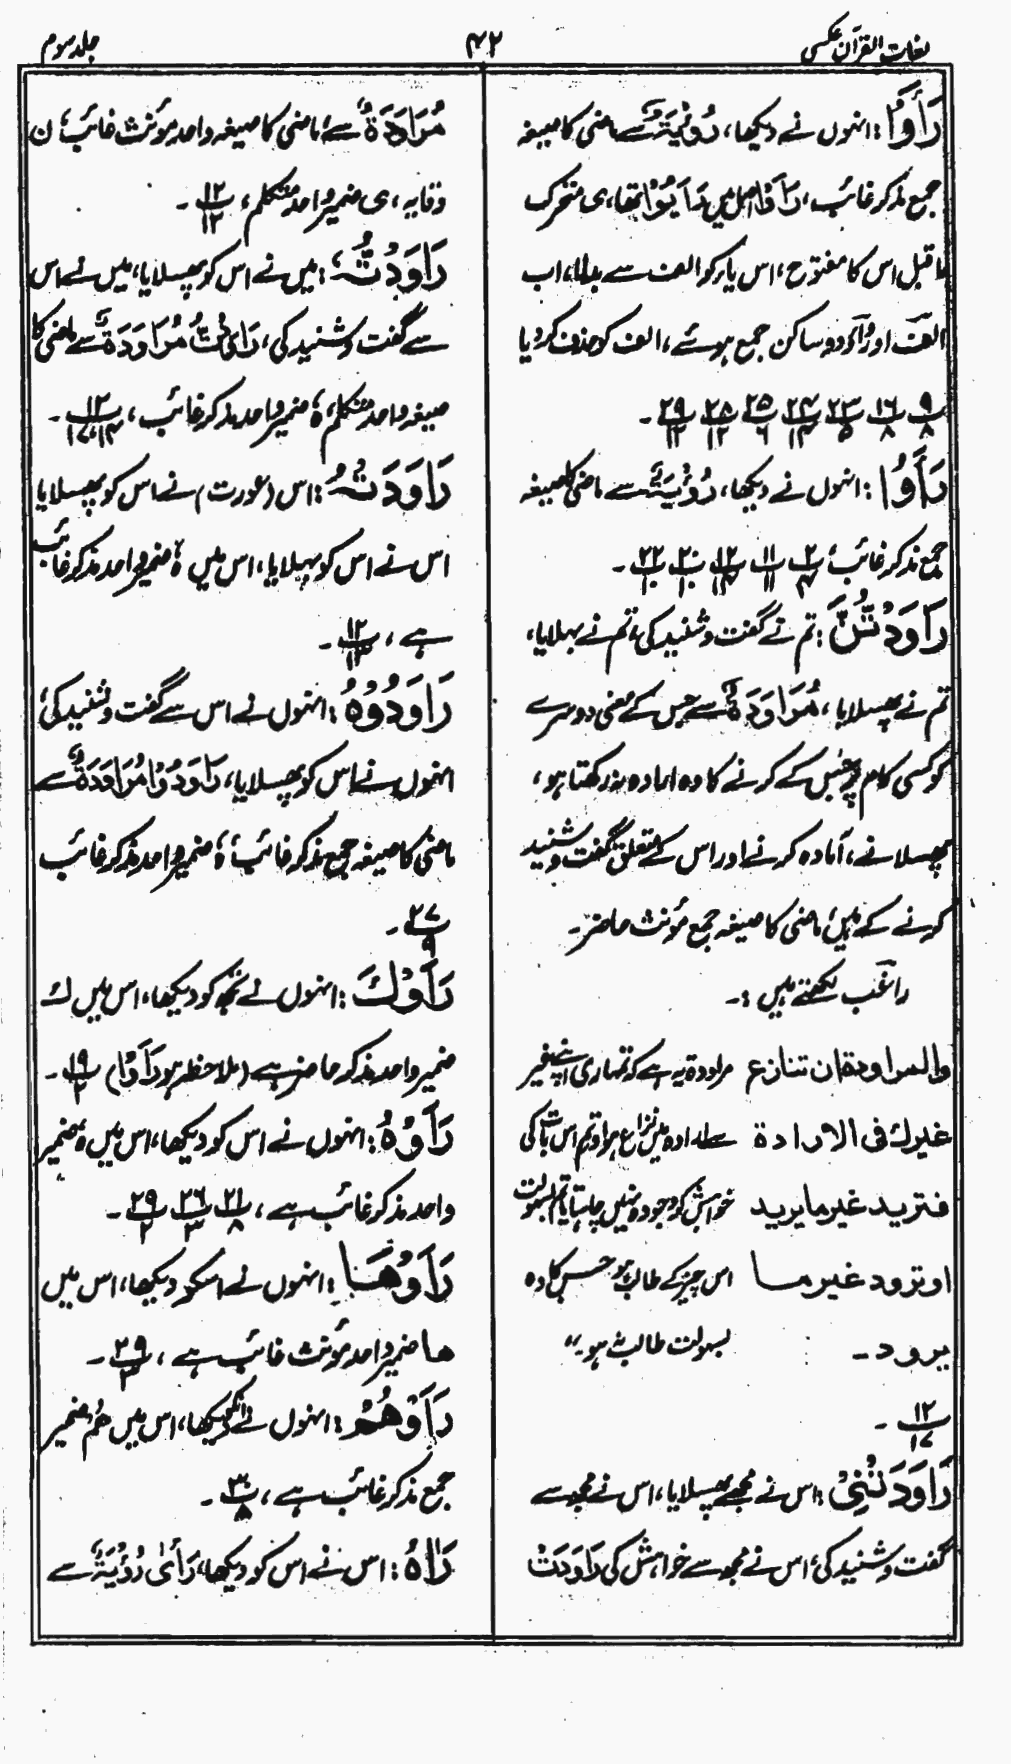 لغات القرآن عکسی
۴۲
جلد سوم
رَأَوْا: انہوں نے دیکھا، رُؤْیَةٌ سے ماضی کا صیغہ
جمع مذکر غائب، رَأَوْا اصل میں رَأَیُوْا تھا، ی متحرک
ماقبل اس کا مفتوح، اس یاء کو الف سے بدلا، اب
الف اور واؤ دو ساکن جمع ہوئے، الف کو حذف کر دیا
۹/۸ ۱۶/۸ ۲۳/۵ ۲۴/۱۴ ۲۵/۶ ۲۸/۱۲ ۲۹/۱۲ ۔
رَأَوُا: انہوں نے دیکھا، رُؤْیَةٌ سے ماضی کا صیغہ
جمع مذکر غائب، ۲/۴ ۱۱/۱۱ ۱۲/۱۴ ۲۰/۱۰ ۲۲/۱۰ ۔
رَاوَدْتُّنَّ: تم نے گفت و شنید کی، تم نے بہلایا،
تم نے پھسلایا، مُرَاوَدَةٌ سے جس کے معنی دوسرے
کو کسی کام پر جس کے کرنے کا وہ ارادہ نہ رکھتا ہو،
پھسلانے، آمادہ کرنے اور اس کے متعلق گفت و شنید
کرنے کے ہیں، ماضی کا صیغہ جمع مؤنث حاضر۔
راغب لکھتے ہیں :۔
والمراودة ان تنازع مراودہ یہ ہے کہ تمہاری اپنے غیر
غیرك فی الارادة سے ارادہ میں نزاع ہو اور تم اس بات کی
فترید غیر ما یرید خواہش کرو جو وہ نہیں چاہتا یا تم بسہولت
او ترود غیر ما اس چیز کے طالب ہو جس کا وہ
یرود۔ بسہولت طالب نہ ہو۔"
۱۲/۱۷ ۔
رَاوَدَتْنِیْ: اس نے مجھے پھسلایا، اس نے مجھ سے
گفت و شنید کی، اس نے مجھ سے خواہش کی رَاوَدَتْ
مُرَاوَدَةٌ سے، ماضی کا صیغہ واحد مؤنث غائب، ن
وقایہ، ی ضمیر واحد متکلم، ۱۲/۱۲ ۔
رَاوَدْتُّهُ: میں نے اس کو پھسلایا، میں نے اس
سے گفت و شنید کی، رَاوَدْتُّ مُرَاوَدَةٌ سے ماضی کا
صیغہ واحد متکلم، ہٗ ضمیر واحد مذکر غائب، ۱۲/۱۷،۱۴ ۔
رَاوَدَتْهُ: اس (عورت) نے اس کو پھسلایا
اس نے اس کو بہلایا، اس میں ہٗ ضمیر واحد مذکر غائب
ہے، ۱۲/۱۳ ۔
رَاوَدُوْهُ: انہوں نے اس سے گفت و شنید کی،
انہوں نے اس کو پھسلایا، رَاوَدُوْا مُرَاوَدَةٌ سے
ماضی کا صیغہ جمع مذکر غائب، ہٗ ضمیر واحد مذکر غائب
۲۷/۹ ۔
رَأَوْكَ: انہوں نے تجھ کو دیکھا، اس میں ك
ضمیر واحد مذکر حاضر ہے (ملاحظہ ہو رَأَوْا) ۱۹/۲ ۔
رَأَوْهُ: انہوں نے اس کو دیکھا، اس میں ہٗ ضمیر
واحد مذکر غائب ہے، ۲۱/۸ ۲۶/۳ ۲۹/۲ ۔
رَأَوْهَا: انہوں نے اسکو دیکھا، اس میں
ها ضمیر واحد مؤنث غائب ہے، ۲۹/۳ ۔
رَأَوْهُمْ: انہوں نے انکو دیکھا، اس میں هُمْ ضمیر
جمع مذکر غائب ہے، ۳۰/۸ ۔
رَاٰهُ: اس نے اس کو دیکھا، رَأٰی رُؤْیَةٌ سے